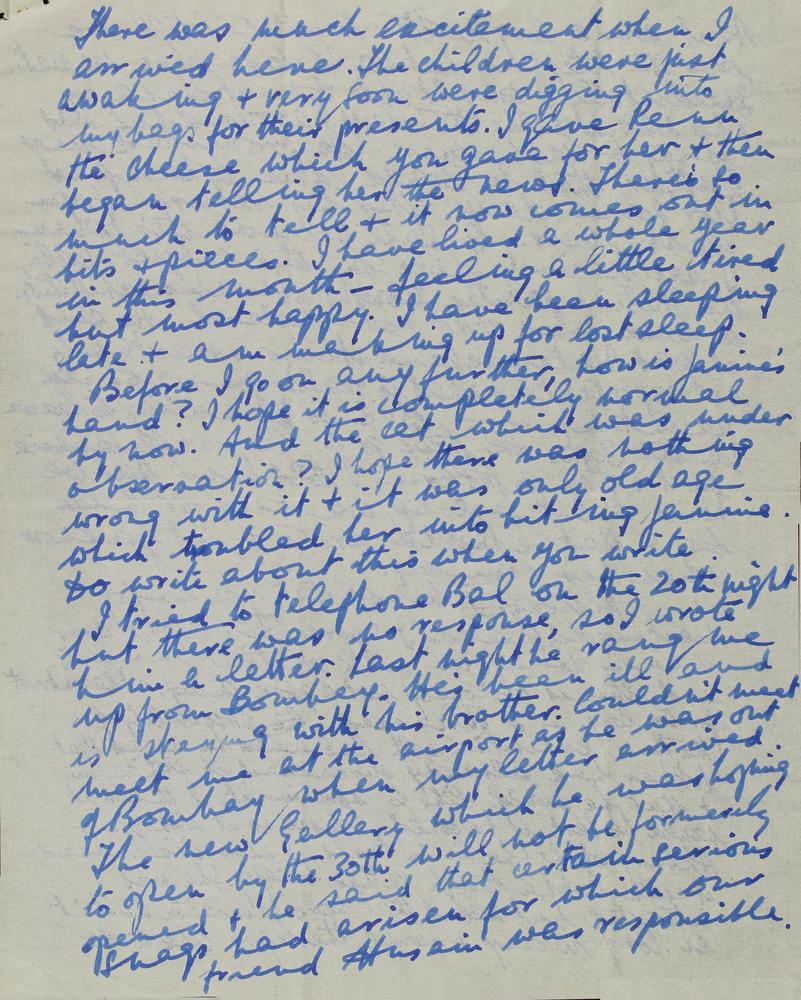 There was much excitement when I
arrived here. The children were just
awaking & very soon were digging into
my bags for their presents. I gave Renu
the cheese which you gave for her & then
began telling her the news. There's so
much to tell & it now comes out in
bits & pieces. I have lived a whole year
in this month – feeling a little tired
but most happy. I have been sleeping
late & am making up for lost sleep.
Before I go on any further, how is Janine's
hand? I hope it is completely normal
by now. And the cat which was under
observation? I hope there was nothing
wrong with it & it was only old age
which troubled her into biting Janine.
Do write about this when you write.
I tried to telephone Bal on the 20th night
but there was no response, so I wrote
him a letter. Last night he rang me
up from Bombay. He's been ill and
is staying with his brother. Couldn't meet
meet me at the airport as he was out
of Bombay when my letter arrived.
The new Gallery which he was hoping
to open by the 30th will not be formerly
opened & he said that certain serious
snags had arisen for which our
friend Husain was responsible.